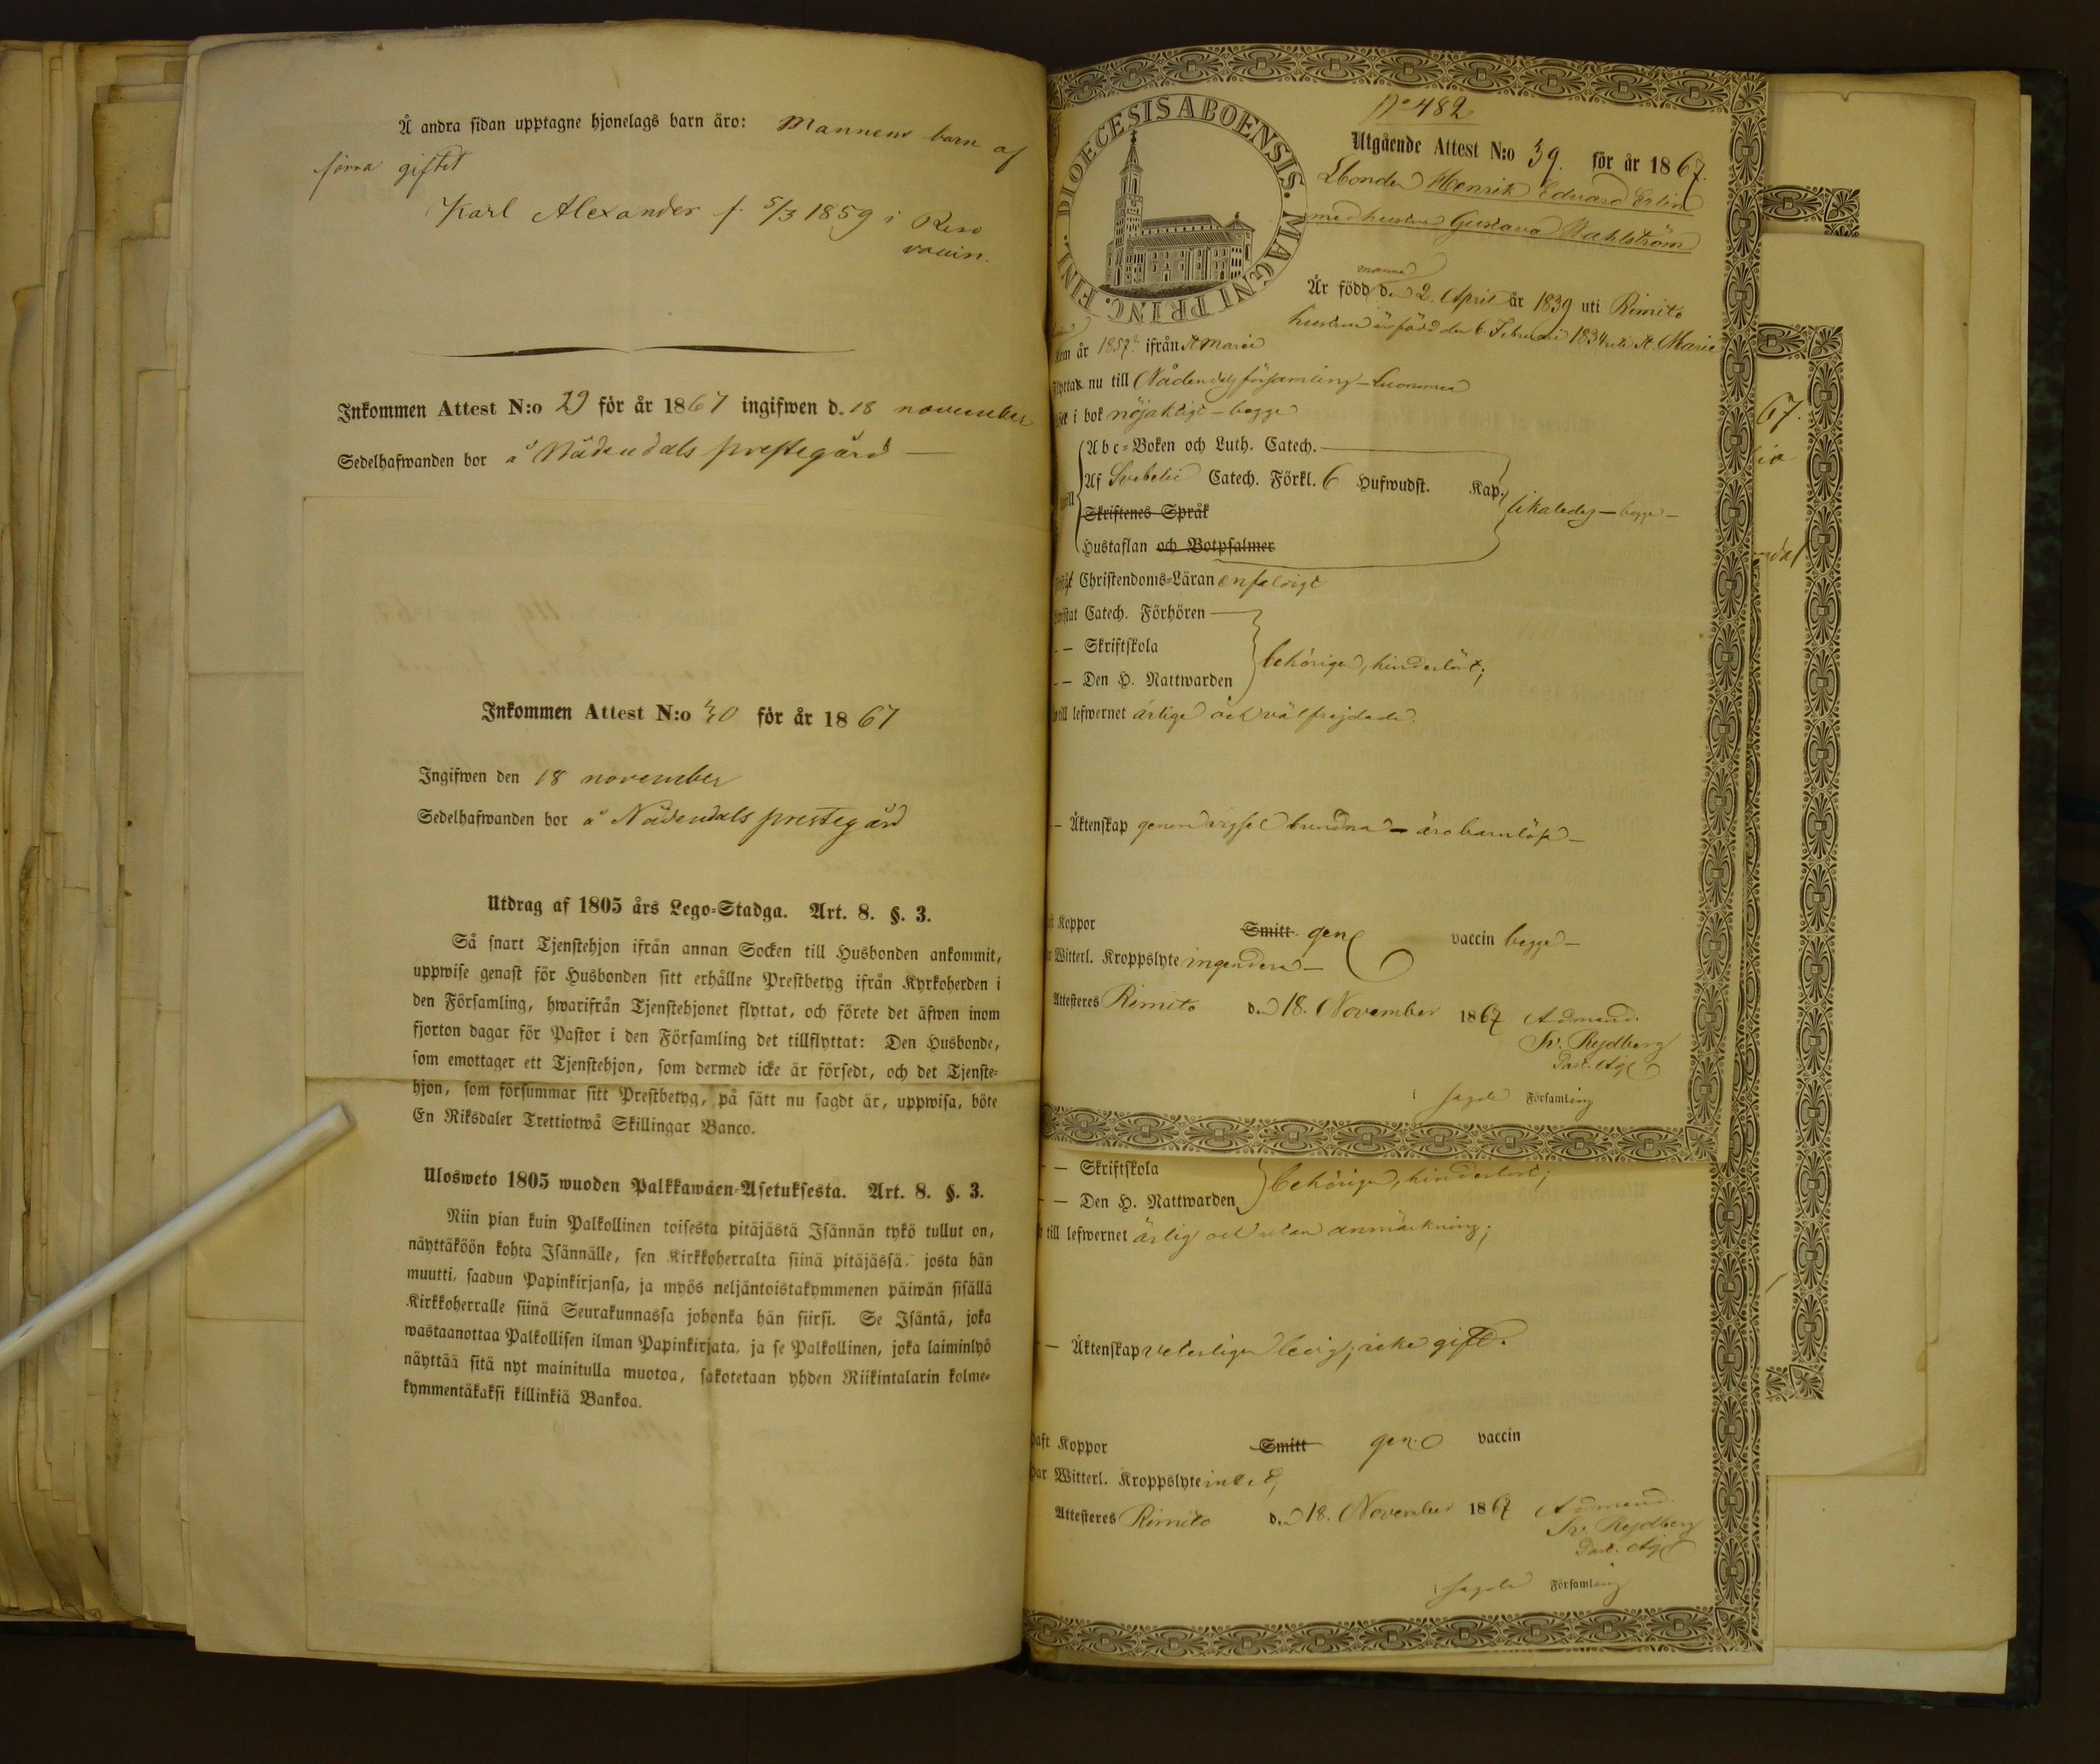 Å andra sidan upptagne hjonelags barn äro: Mannens barn af
förra giftet
Karl Alexander f. 5/3 1859 i Reso
vaccin.
Inkommen Attest N:o 29 för år 1867 ingifwen d. 18 november
Sedelhafwanden bor å Nådendals prestegård
Inkommen Attest N:o 30 för år 1867
Ingifwen den 18 november
Sedelhafwanden bor å Nådendals prestegård
Utdrag af 1805 års Lego-Stadga. Art. 8. §. 3.
Så snart Tjenstehjon ifrån annan Socken till Husbonden ankommit,
uppwise genast för Husbonden sitt erhållne Prestbetyg ifrån Kyrkoherden i
den Församling, hwarifrån Tjenstehjonet flyttat, och förete det äfwen inom
fjorton dagar för Pastor i den Församling det tillflyttat: Den Husbonde,
som emottager ett Tjenstehjon, som dermed icke är försedt, och det Tjenste-
hjon, som försummar sitt Prestbetyg, på sätt nu sagdt är, uppwisa, böte
En Riksdaler Trettiotwå Skillingar Banco.
Ulosweto 1805 wuoden Palkkawäen-Asetuksesta. Art. 8. §. 3.
Niin pian kuin Palkollinen toisesta pitäjästä Isännän tykö tullut on,
näyttäköön kohta Isännälle, sen Kirkkoherralta siinä pitäjässä, josta hän
muutti, saadun Papinkirjansa, ja myös neljäntoistakymmenen päiwän sisällä
Kirkkoherralle siinä Seurakunnassa johonka hän siirsi. Se Isäntä, joka
wastaanottaa Palkollisen ilman Papinkirjata, ja se Palkollinen, joka laiminlyö
näyttää sitä nyt mainitulla muotoa, sakotetaan yhden Riikintalarin kolme-
kymmentäkaksi killinkiä Bankoa.
DIOECESIS ABOENSIS. MAGNI PRINC. FINL.
No 482
Utgående Attest N:o 39. för år 1867.
Henrik Edvard Erlin
med hustru Gustava Wahlström
mannen
Är född den 2. April år 1839 uti Rimito
hustrun är född den 6. Februari 1834 uti St. Marie
år 1857 ifrån St Marie
nu till Nådendals församling – Luonnmaa
i bok nöjaktigt – begge
Abc-Boken och Luth. Catech.
Af Svebelii Catech. Förkl. 6 Hufwudst. Kap. likaledes – begge –
Skriftenes Språk
Hustaflan och Botpsalmer
Christendoms-Läran enfaldigt
Catech. Förhören
– Skriftskola
– Den H. Nattwarden behörigen, hinderlöst;
till lefwernet ärlige och välfrejdade.
– Äktenskap genom vigsel bundna – äro barnlöse –
Koppor Smitt gen vaccin begge –
Witterl. Kroppslyte ingendera –
Attesteras Rimito den 18. November 1867 Ad mand.
Sv. Rejdberg
Past. Adj
i sagde Församling
67.
ndal
– – Skriftskola
– – Den H. Nattwarden behörigen, hinderlöst;
till lefwernet ärlig och utan anmärkning;
– Äktenskap veterligen ledig; icke gift.
haft Koppor Smitt gen. vaccin
har Witterl. Kroppslyte intet,
Attesteres Rimito den 18. November 1867 Ad mand.
Sv. Rejdberg
Past. Adj
i sagde Församling